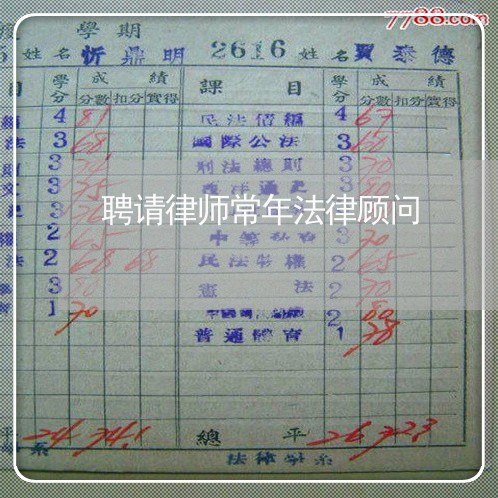 7788.com
學期
姓名 忻鼎明 2616 姓名 賈泰德
目 學分 成績 課目 學分 成績
分數 扣分 實得 分數 扣分 實得
4 81 民法債編 4 67
法 3 68 國際公法 3 60
3 刑法總則 3 70
文 3 75 西洋通史 3 80
聘请律师常年法律顾问
2 65 3 70
法 2 68 68 民法物權 2 65
3 80 憲法 2 70
1 70 2 80
普通體育 1 78
平 24 74.1 總平 26 72.3
系 法律學系